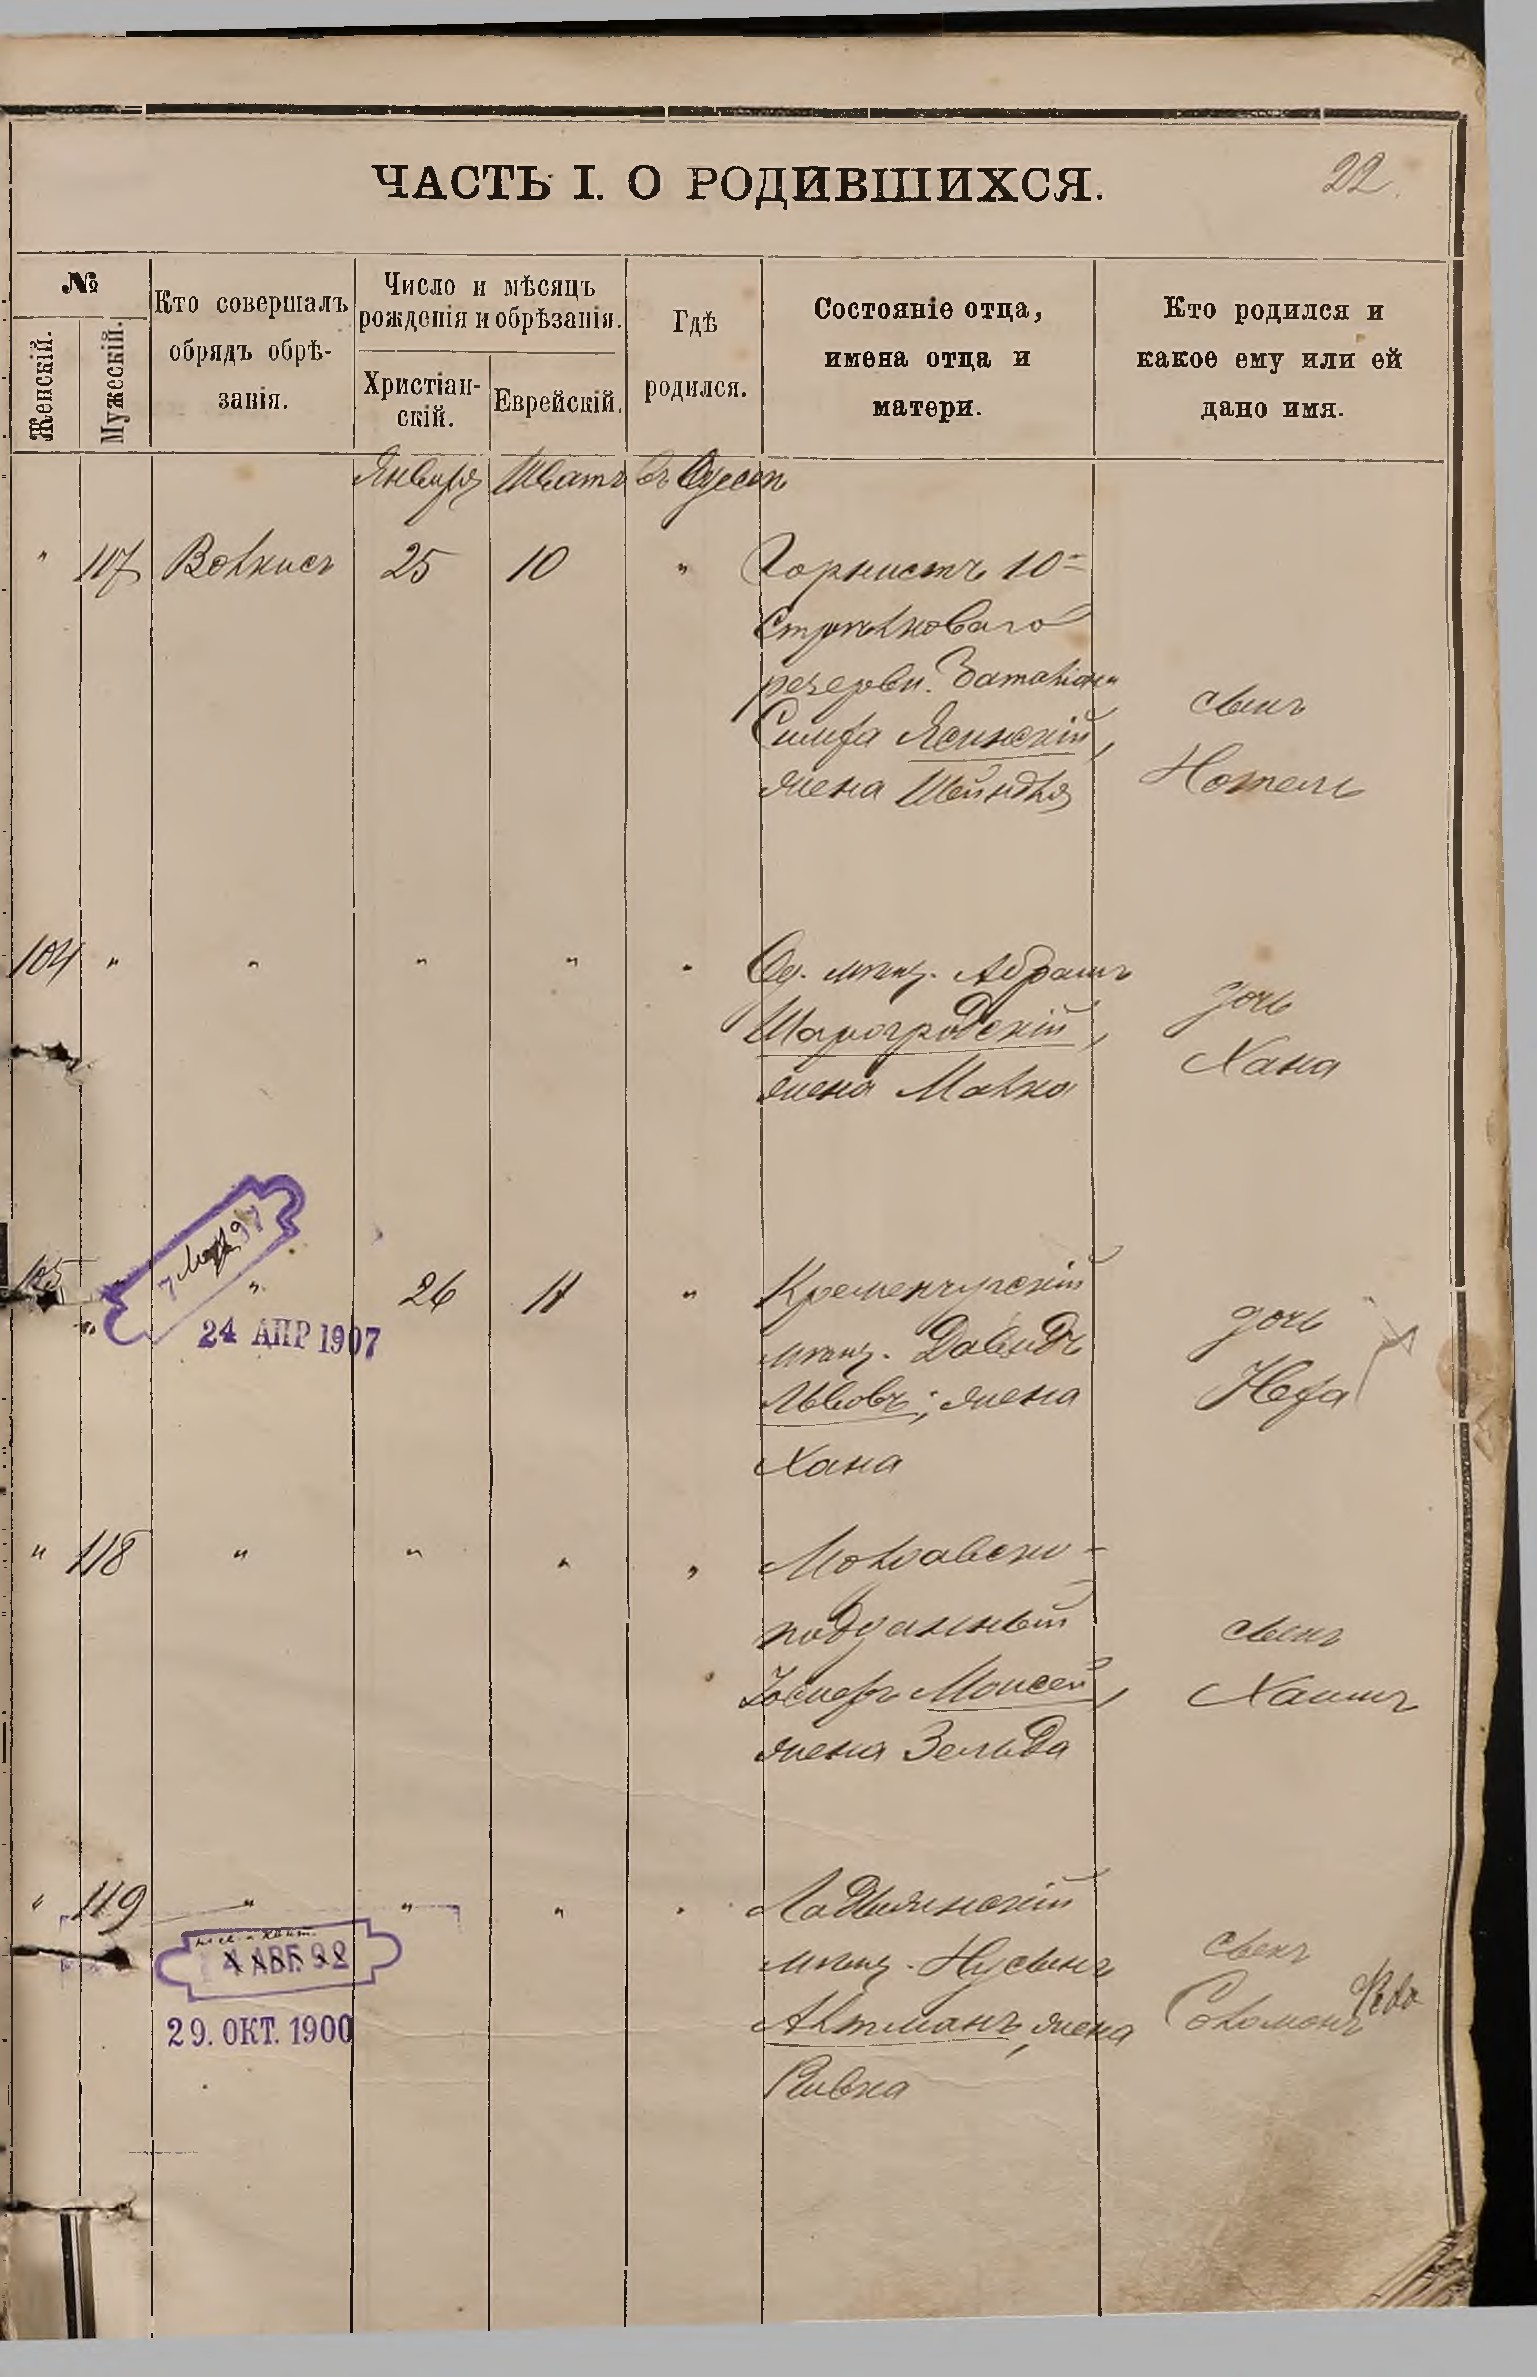 ЧАСТЬ I. О РОДИВШИХСЯ.
22.
№
Женскій.
Мужескій.
Кто совершалъ
обрядъ обрѣ-
занія.
Число и мѣсяцъ
рожденія и обрѣзанія.
Христіан-
скій.
Еврейскій.
Гдѣ
родился.
Состояніе отца,
имена отца и
матери.
Кто родился и
какое ему или ей
дано имя.
Января Шватъ въ Одессѣ
" 117 Волкисъ 25 10 " Горнистъ 10=
Стрѣлковаго
резервн. баталіона
Симха Ясинскій,
жена Шейндля
сынъ
Нотель
104 " " " " " Од. мѣщ. Абрамъ
Шарогродскій,
жена Малка
дочь
Хана
105 " " 26 11 " Кременчугскій
мѣщ. Давидъ
Львовъ; жена
Хана
дочь
24 АПР 1907
" 118 " " " " Молдавско-
подданный
Іосифъ Моисей,
жена Зельда
сынъ
Хаимъ
" 119 " " " " Ладыжинскій
мѣщ. Нусынъ
Альтманъ, жена
Ривка
сынъ
Соломонъ
4 АВГ. 92
29. ОКТ. 1900